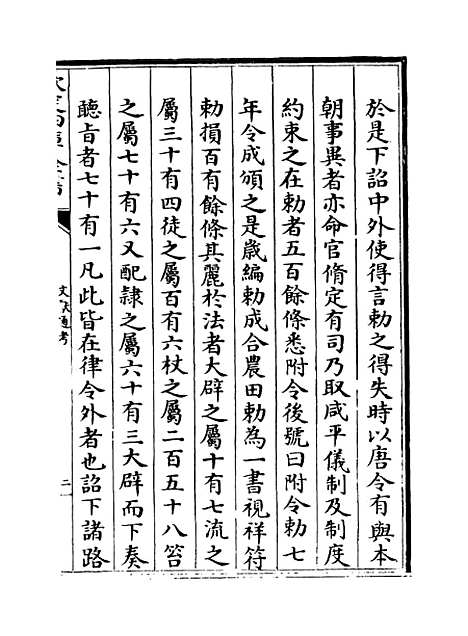 於是下詔中外使得言勅之得失時以唐令有與本
朝事異者亦命官脩定有司乃取咸平儀制及制度
約束之在勅者五百餘條悉附令後號曰附令勅七
年令成頒之是歲編勅成合農田勅為一書視祥符
勅損百有餘條其麗於法者大辟之屬十有七流之
屬三十有四徒之屬百有六杖之屬二百五十八笞
之屬七十有六又配隷之屬六十有三大辟而下奏
聽㫖者七十有一凡此皆在律令外者也詔下諸路
文獻通考